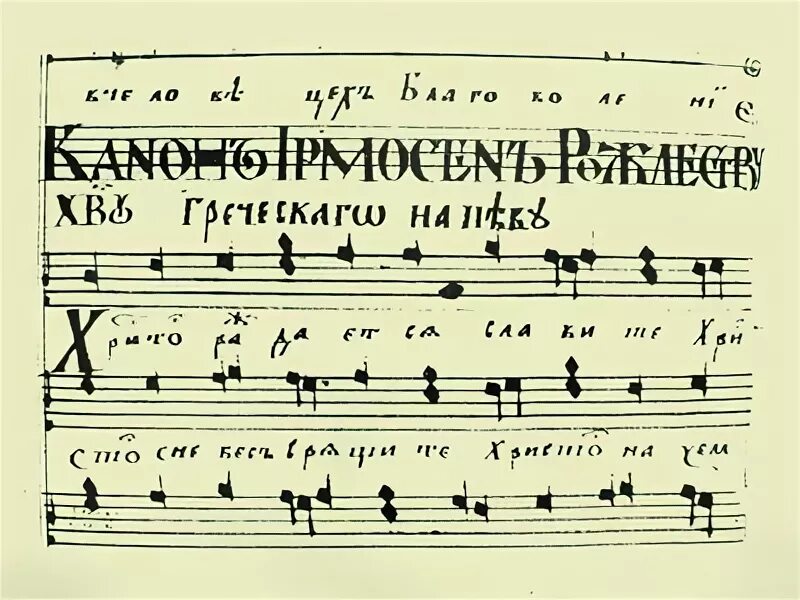 в челов вѣ цехъ Благо во ле нїе
Канонъ Ірмосенъ Рождеству
Хв҃у греческагѡ напѣву
Христо ражда єтсѧ слави те Хри
сто сне бесъ врѧщи те Христо на зем